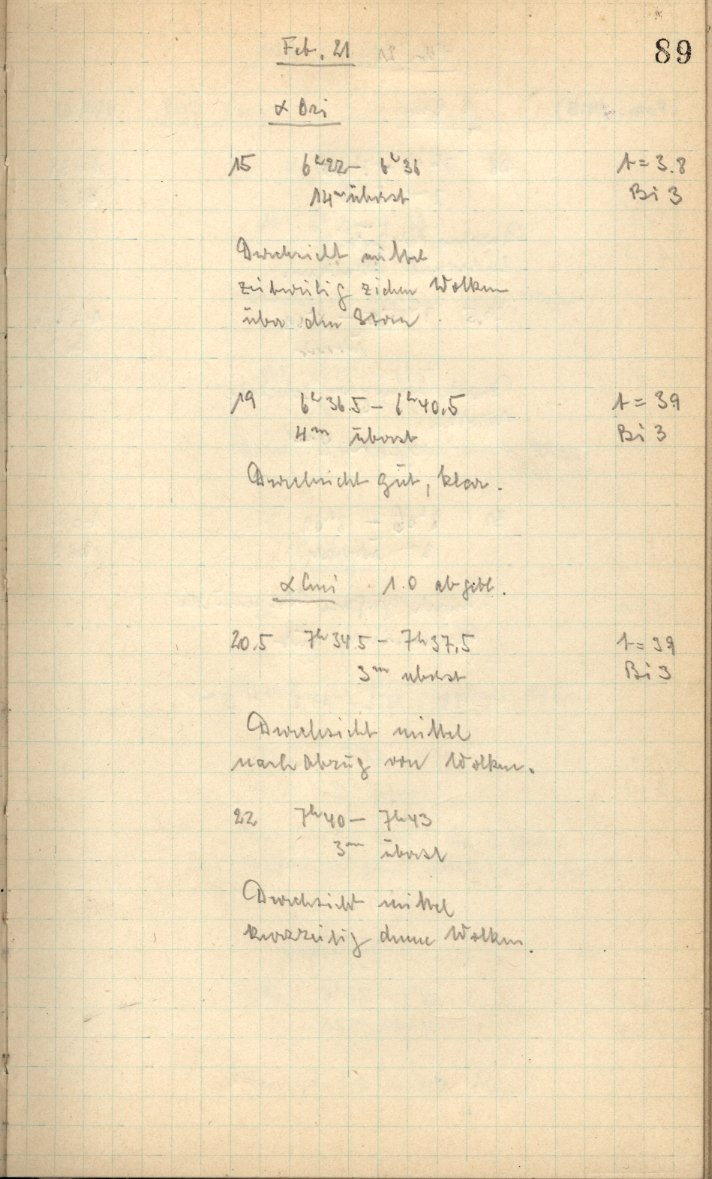 89
Feb. 21
α Ori
15 6h22 – 6h36 t = 3.8
14m überst Bi 3
Durchsicht mittel
zeitweilig ziehen Wolken
über den Stern
19 6h36.5 – 6h40,5 t = 39
4m überst Bi 3
Durchsicht gut, klar.
α Cmi 1.0 abgebl.
20.5 7h34.5 – 7h37,5 t = 39
3m überst Bi 3
Durchsicht mittel
nach Abzug von Wolken.
22 7h40 – 7h43
3m überst
Durchsicht mittel
kurzzeitig dünne Wolken.